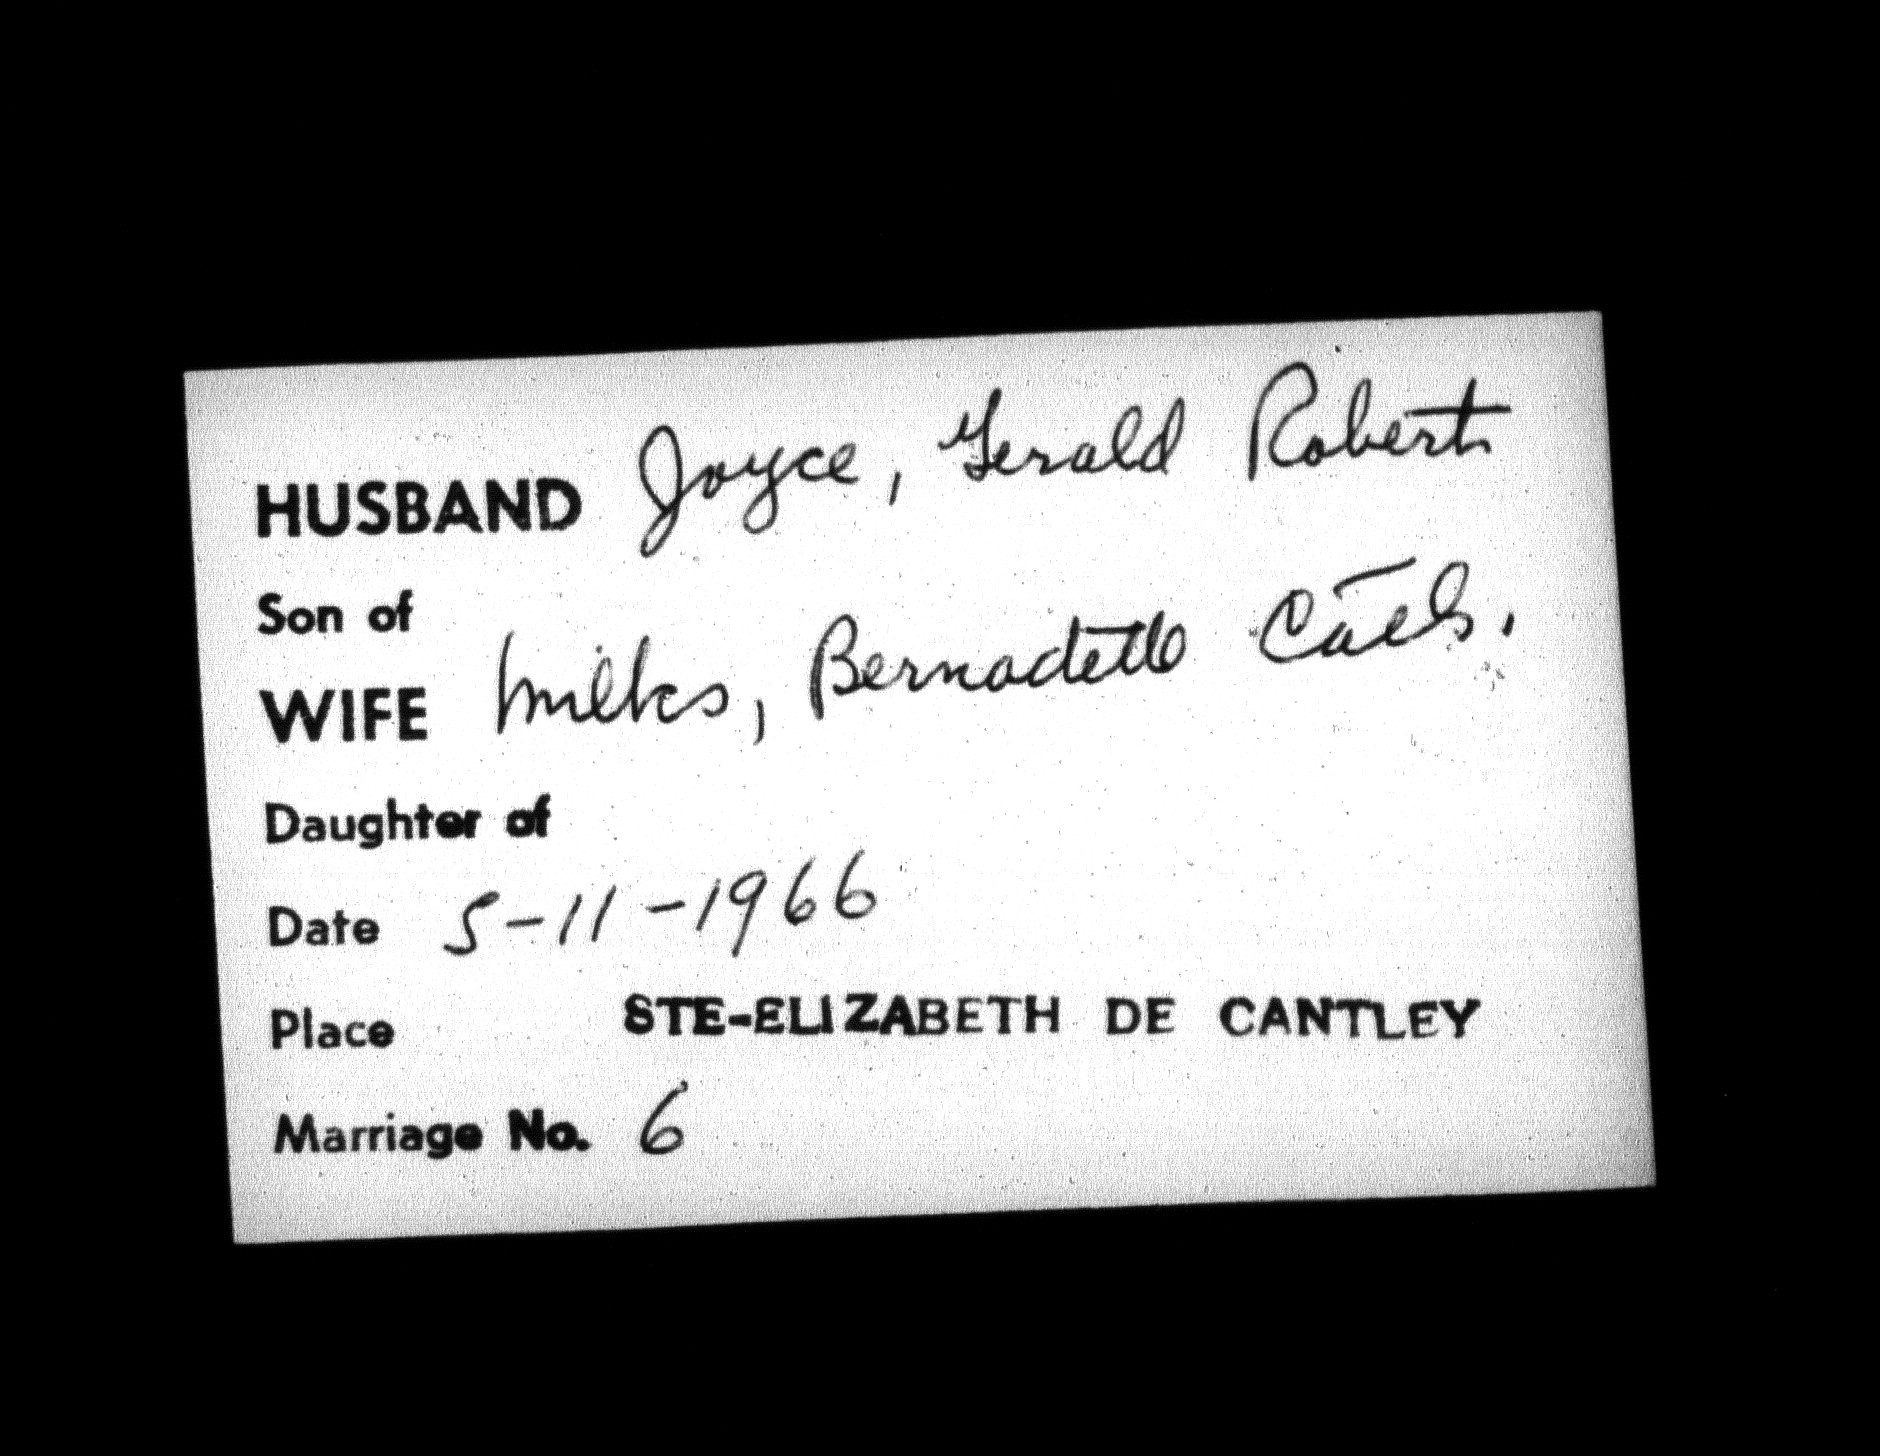 HUSBAND Joyce, Gerald Robert
Son of
WIFE Milks, Bernadette
Daughter of
Date 5-11-1966
Place STE-ELIZABETH DE CANTLEY
Marriage No. 6